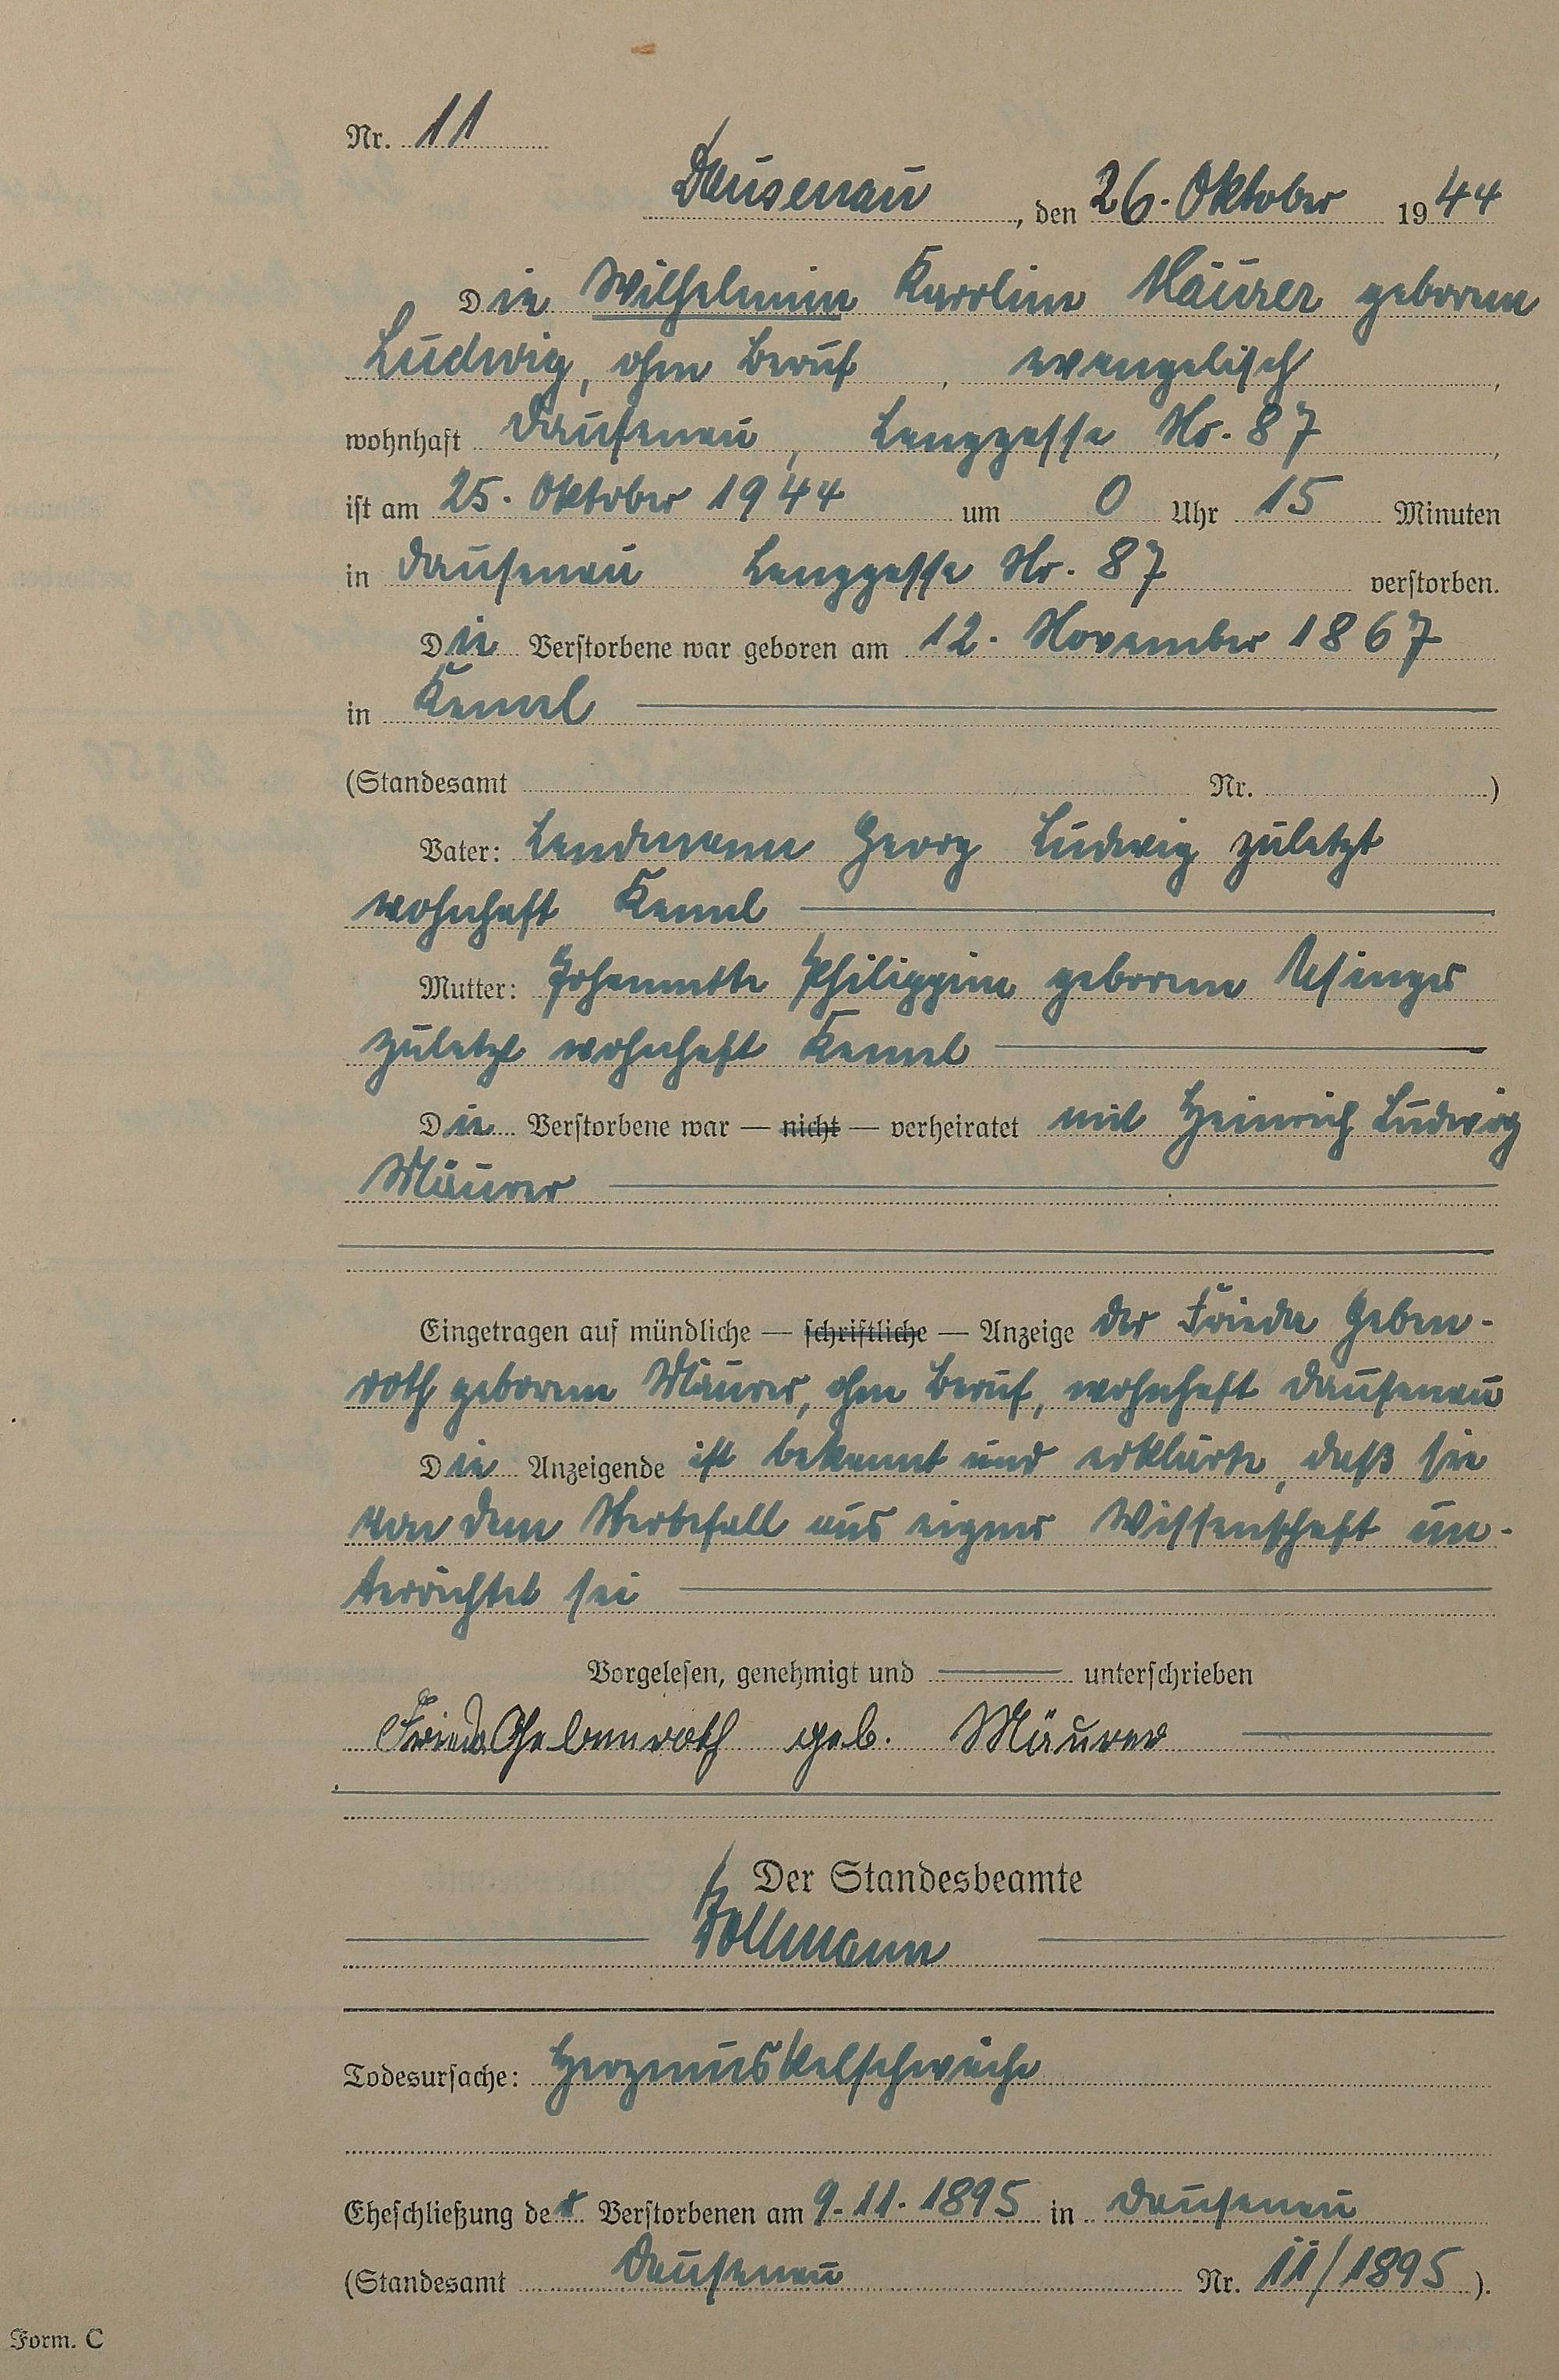 Nr. 11
Dausenau, den 26. Oktober 1944
Die Wilhelmine Karoline Mäurer geborene
Ludwig, ohne Beruf, evangelisch,
wohnhaft Dausenau, Langgasse Nr. 87,
ist am 25. Oktober 1944 um 0 Uhr 15 Minuten
in Dausenau Langgasse Nr. 87 verstorben.
Die Verstorbene war geboren am 12. November 1867
in Kemel
(Standesamt Nr. )
Vater: Landmann Georg Ludwig zuletzt
wohnhaft Kemel
Mutter: Johannette Philippine geborene Usinger
zuletzt wohnhaft Kemel
Die Verstorbene war — nicht — verheiratet mit Heinrich Ludwig
Mäurer
Eingetragen auf mündliche — schriftliche — Anzeige der Frieda Geben-
roth geborene Mäurer, ohne Beruf, wohnhaft Dausenau
Die Anzeigende ist bekannt und erklärte, daß sie
von dem Sterbefall aus eigner Wissenschaft un-
terrichtet sei
Vorgelesen, genehmigt und unterschrieben
Frieda Gebenroth geb. Mäurer
Der Standesbeamte
Follmann
Todesursache: Herzmuskelschwäche
Eheschließung der Verstorbenen am 9.11.1895 in Dausenau
(Standesamt Dausenau Nr. 11/1895).
Form. C